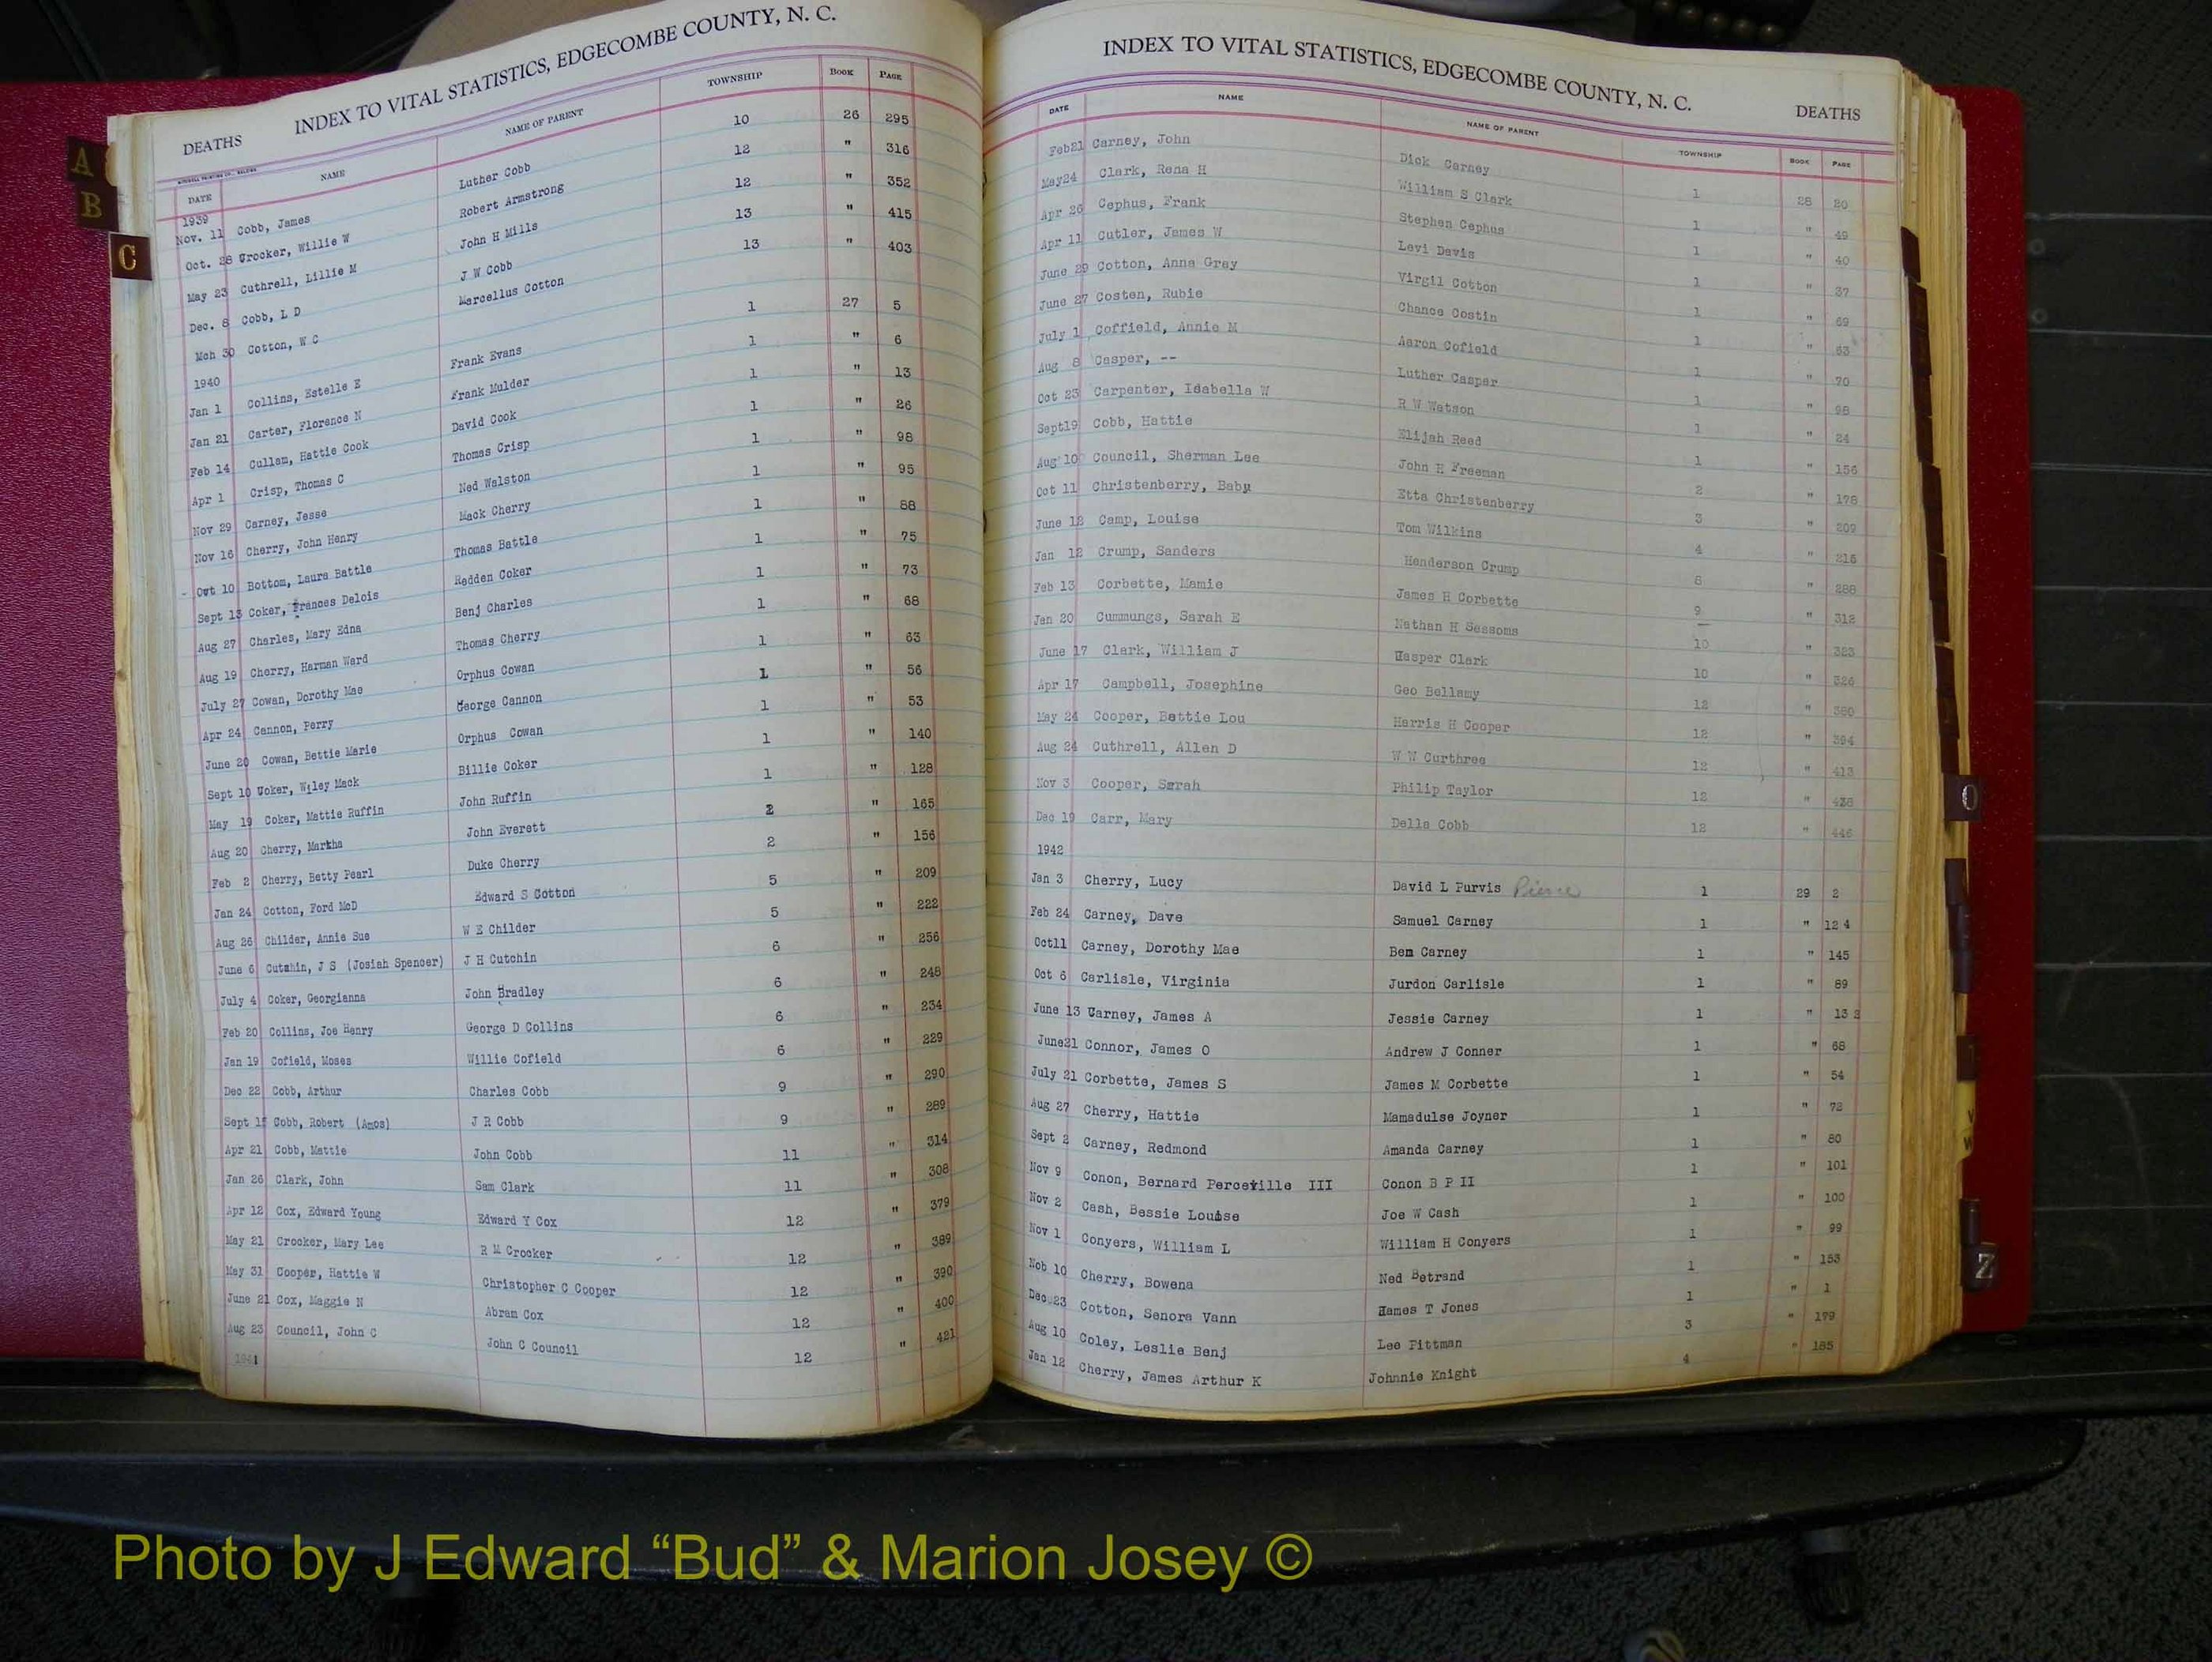 INDEX TO VITAL STATISTICS, EDGECOMBE COUNTY, N. C.
DEATHS
DATE NAME NAME OF PARENT TOWNSHIP BOOK PAGE
1939
Nov. 11 Cobb, James Luther Cobb 10 26 295
Oct. 28 Crocker, Willie W Robert Armstrong 12 " 316
May 23 Cuthrell, Lillie M John H Mills 12 " 352
Dec. 8 Cobb, L D J W Cobb 13 " 415
Mch 30 Cotton, W C Marcellus Cotton 13 " 403
1940
Jan 1 Collins, Estelle E Frank Evans 1 27 5
Jan 21 Carter, Florence N Frank Mulder 1 " 6
Feb 14 Cullam, Hattie Cook David Cook 1 " 13
Apr 1 Crisp, Thomas C Thomas Crisp 1 " 26
Nov 29 Carney, Jesse Ned Walston 1 " 98
Nov 16 Cherry, John Henry Mack Cherry 1 " 95
Oct 10 Bottom, Laura Battle Thomas Battle 1 " 88
Sept 13 Coker, Frances Delois Redden Coker 1 " 75
Aug 27 Charles, Mary Edna Benj Charles 1 " 73
Aug 19 Cherry, Harman Ward Thomas Cherry 1 " 68
July 27 Cowan, Dorothy Mae Orphus Cowan 1 " 63
Apr 24 Cannon, Perry George Cannon 1 " 56
June 20 Cowan, Bettie Marie Orphus Cowan 1 " 53
Sept 10 Coker, Wiley Mack Billie Coker 1 " 140
May 19 Coker, Mattie Ruffin John Ruffin 1 " 128
Aug 20 Cherry, Martha John Everett 2 " 165
Feb 2 Cherry, Betty Pearl Duke Cherry 2 " 156
Jan 24 Cotton, Ford McD Edward S Cotton 5 " 209
Aug 26 Childer, Annie Sue W E Childer 5 " 222
June 6 Cutchin, J S (Josiah Spencer) J H Cutchin 6 " 256
July 4 Coker, Georgianna John Bradley 6 " 248
Feb 20 Collins, Joe Henry George D Collins 6 " 234
Jan 19 Cofield, Moses Willie Cofield 6 " 229
Dec 22 Cobb, Arthur Charles Cobb 9 " 290
Sept Cobb, Robert (Amos) J R Cobb 9 " 289
Apr 21 Cobb, Mattie John Cobb 11 " 314
Jan 26 Clark, John Sam Clark 11 " 308
Apr 12 Cox, Edward Young Edward Y Cox 12 " 379
May 21 Crocker, Mary Lee R M Crocker 12 " 389
May 31 Cooper, Hattie W Christopher C Cooper 12 " 390
June 21 Cox, Maggie N Abram Cox 12 " 400
Aug 23 Council, John C John C Council 12 " 421
1941
INDEX TO VITAL STATISTICS, EDGECOMBE COUNTY, N. C.
DEATHS
DATE NAME NAME OF PARENT TOWNSHIP BOOK PAGE
Feb21 Carney, John Dick Carney 1 28 20
May24 Clark, Rena H William S Clark 1 " 49
Apr 26 Cephus, Frank Stephen Cephus 1 " 40
Apr 11 Cutler, James W Levi Davis 1 " 37
June 29 Cotton, Anna Gray Virgil Cotton 1 " 69
June 27 Costen, Rubie Chance Costin 1 " 63
July 1 Coffield, Annie M Aaron Cofield 1 " 70
Aug 8 Casper, -- Luther Casper 1 " 98
Oct 23 Carpenter, Isabella W R W Watson 1 " 24
Sept19 Cobb, Hattie Elijah Reed 1 " 156
Aug 10 Council, Sherman Lee John H Freeman 2 " 178
Oct 11 Christenberry, Baby Etta Christenberry 3 " 209
June 12 Camp, Louise Tom Wilkins 4 " 216
Jan 12 Crump, Sanders Henderson Crump " 288
Feb 13 Corbette, Mamie James H Corbette 9 " 312
Jan 20 Cummungs, Sarah E Nathan H Sessoms 10 " 323
June 17 Clark, William J Hasper Clark 10 " 326
Apr 17 Campbell, Josephine Geo Bellamy 12 " 380
May 24 Cooper, Bettie Lou Harris H Cooper 12 " 394
Aug 24 Cuthrell, Allen D W W Curthree 12 " 413
Nov 3 Cooper, Sarah Philip Taylor 12 "
Dec 19 Carr, Mary Della Cobb 12 " 446
1942
Jan 3 Cherry, Lucy David L Purvis 1 29 2
Feb 24 Carney, Dave Samuel Carney 1 " 124
Oct11 Carney, Dorothy Mae Ben Carney 1 " 145
Oct 6 Carlisle, Virginia Jurdon Carlisle 1 " 89
June 13 Carney, James A Jessie Carney 1 " 132
June21 Connor, James O Andrew J Conner 1 " 68
July 21 Corbette, James S James M Corbette 1 " 54
Aug 27 Cherry, Hattie Mamadulse Joyner 1 " 72
Sept 2 Carney, Redmond Amanda Carney 1 " 80
Nov 9 Conon, Bernard Perceville III Conon B P II 1 " 101
Nov 2 Cash, Bessie Louise Joe W Cash 1 " 100
Nov 1 Conyers, William L William H Conyers 1 " 99
Nob 10 Cherry, Bowena Ned Betrand 1 " 153
Dec 23 Cotton, Senora Vann Hames T Jones 1 " 1
Aug 10 Coley, Leslie Benj Lee Pittman 3 " 179
Jan 12 Cherry, James Arthur K Johnnie Knight 4 " 185
A
B
C
O
V
W
Z
Photo by J Edward “Bud” & Marion Josey ©